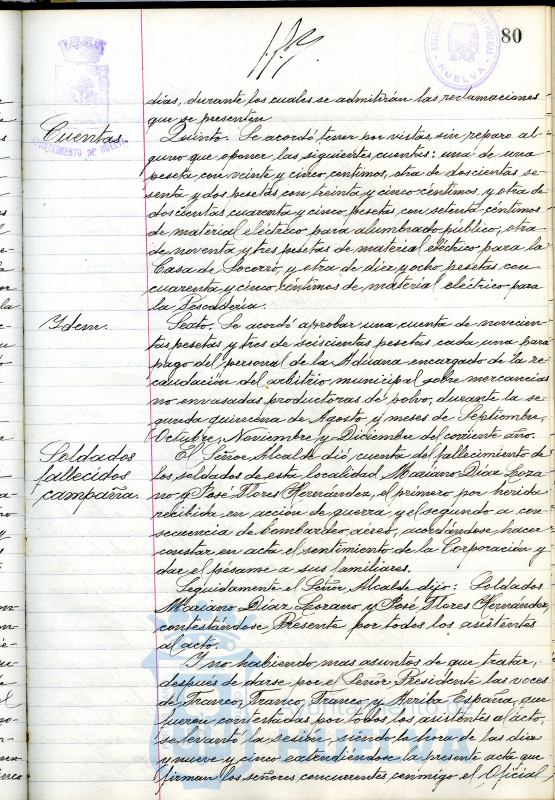 80
AYUNTAMIENTO DE HUELVA
HUELVA
dias, durante los cuales se admitirán las reclamaciones
que se presenten.
Cuentas.
Quinto: Se acordó tener por vistas, sin reparo al-
guno que oponer las siguientes cuentas: una de una
peseta con veinte y cinco centimos, otra de doscientas se-
senta y dos pesetas con treinta y cinco centimos, y otra de
doscientas cuarenta y cinco pesetas con setenta céntimos
de material eléctrico para alumbrado público; otra
de noventa y tres pesetas de material eléctrico para la
Casa de Socorro, y otra de diez y ocho pesetas con
cuarenta y cinco centimos de material eléctrico para
la Pescadería.
Ydem.
Sexto: Se acordó aprobar una cuenta de novecien-
tas pesetas y tres de seiscientas pesetas cada una para
pago del personal de la Aduana encargado de la re-
caudación del arbitrio municipal sobre mercancias
no envasadas productoras de polvo, durante la se-
gunda quincena de Agosto y meses de Septiembre,
Octubre, Noviembre y Diciembre del corriente año.
Soldados
fallecidos
campaña.
El Señor Alcalde dió cuenta del fallecimiento de
los soldados de esta localidad Mariano Díaz Loza-
no y José Flores Hernández, el primero por herida
recibida en acción de guerra y el segundo a con-
secuencia de bombardeo aéreo, acordándose hacer
constar en acta el sentimiento de la Corporación y
dar el pésame a sus familiares.
Seguidamente el Señor Alcalde dijo: Soldados
Mariano Díaz Lozano y José Flores Hernández,
contestándose, Presente por todos los asistentes
al acto.
Y no habiendo mas asuntos de que tratar,
después de darse por el Señor Presidente las voces
de Franco, Franco, Franco y Arriba España, que
fueron contestadas por todos los asistentes al acto,
se levantó la sesión, siendo la hora de las diez
y nueve y cinco extendiendose la presente acta que
firman los señores concurrentes conmigo el Oficial
Ayuntamiento de
HUELVA